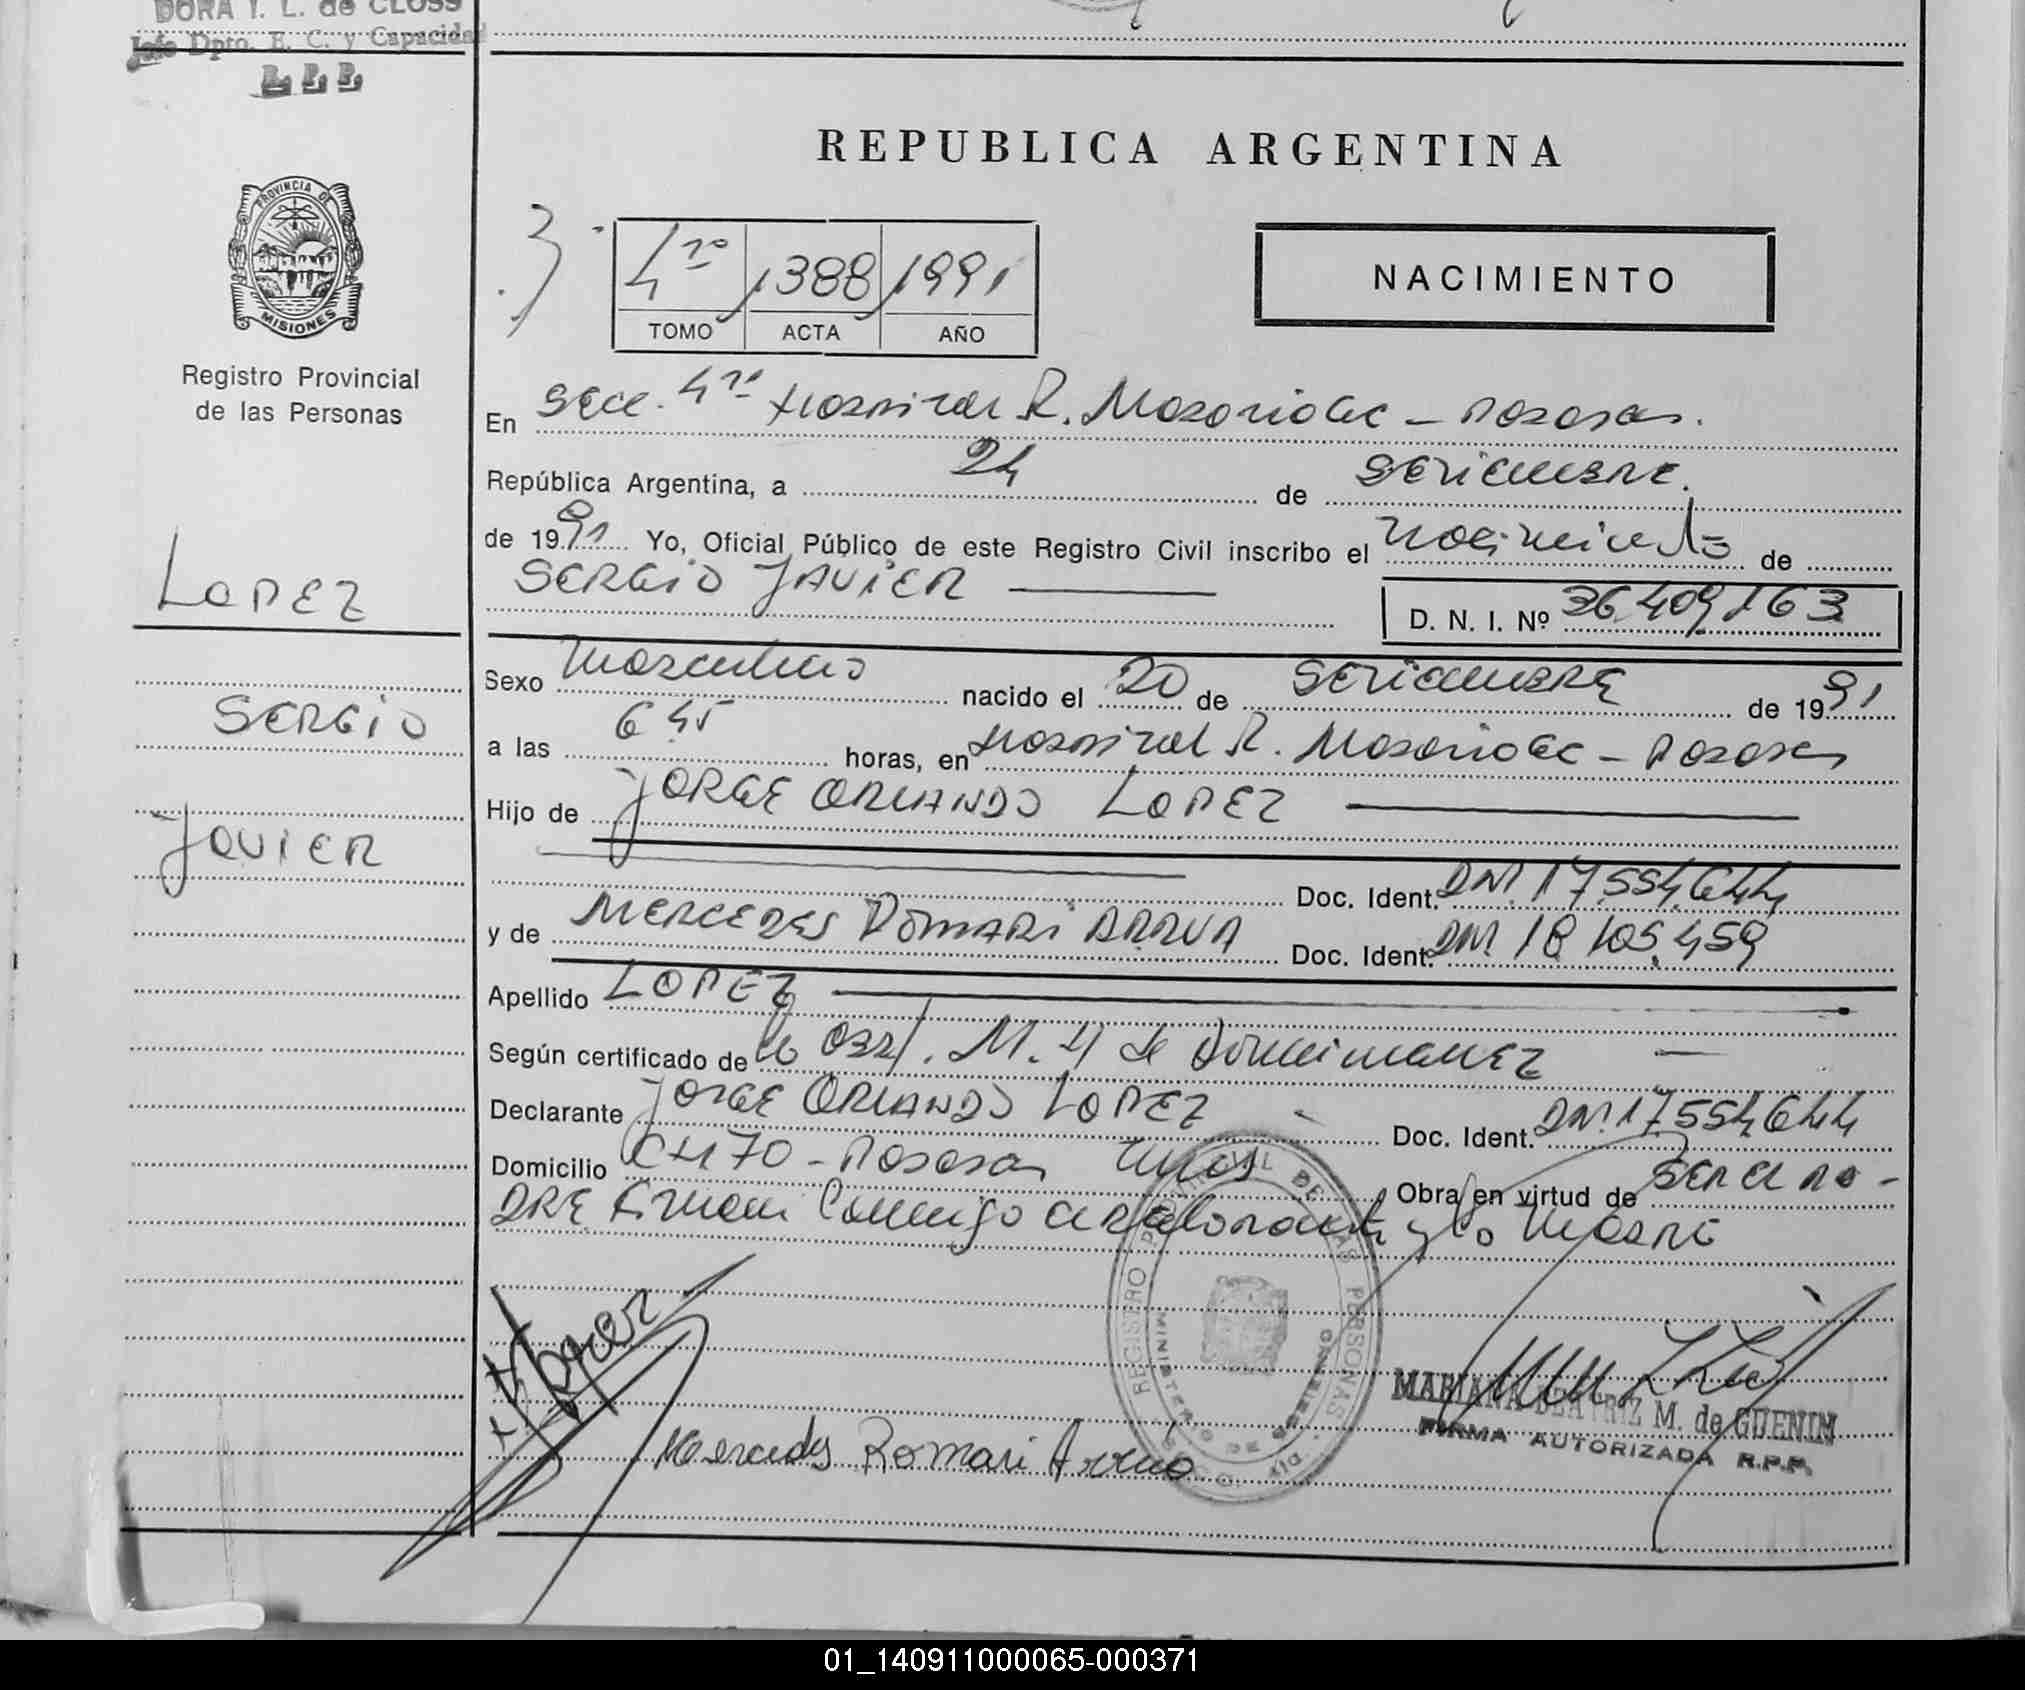 DORA T. L. de CLOSS
Jefe Dpto. E. C. y Capacidad
R. P. P.
REPUBLICA ARGENTINA
PROVINCIA DE
MISIONES
Registro Provincial
de las Personas
3
4ta 1388 1991
TOMO ACTA AÑO
NACIMIENTO
En Secc. 4ta Hospital R. Madariaga - Posadas.
República Argentina, a 24 de SETIEMBRE.
de 1991 Yo, Oficial Público de este Registro Civil inscribo el nacimiento de
SERGIO JAVIER
D. N. I. Nº 36.409.163
LOPEZ
SERGIO
JAVIER
Sexo Masculino nacido el 20 de SETIEMBRE de 1991
a las 6 45 horas, en Hospital R. Madariaga - Posadas
Hijo de JORGE ORLANDO LOPEZ
Doc. Ident. DNI. 17.554.644
y de MERCEDES ROMARI ARRUA Doc. Ident. DNI 18.105.459
Apellido LOPEZ
Según certificado de la Obst. M. de DOMINGUEZ
Declarante JORGE ORLANDO LOPEZ Doc. Ident. DNI. 17.554.644
Domicilio CH 170 - Posadas Mnes Obra en virtud de SER EL PA-
DRE Firman Conmigo el declarante y la MADRE
Lopez
Mercedes Romari Arrua
REGISTRO PROVINCIAL DE LAS PERSONAS
MINISTERIO DE GOBIERNO
MARIANA BEATRIZ M. de GUENIN
FIRMA AUTORIZADA R.P.P.
01_140911000065-000371